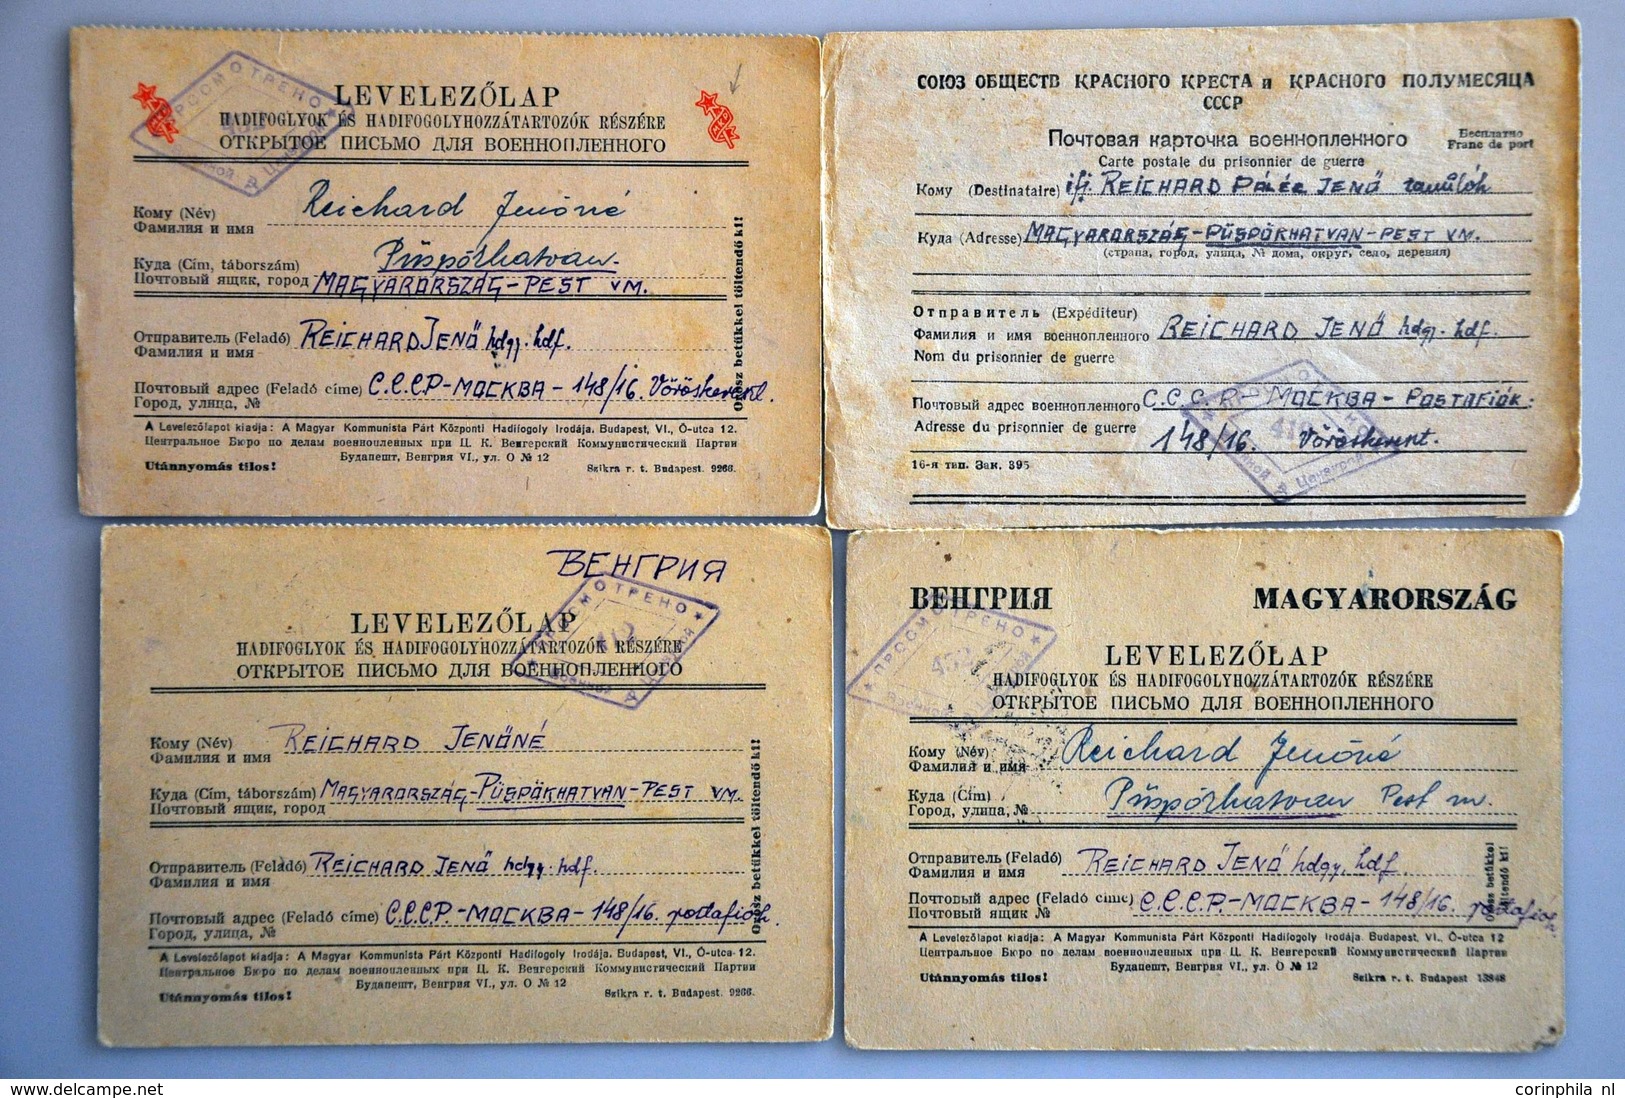 LEVELEZŐLAP
HADIFOGLYOK ÉS HADIFOGOLYHOZZÁTARTOZÓK RÉSZÉRE
ОТКРЫТОЕ ПИСЬМО ДЛЯ ВОЕННОПЛЕННОГО
ПРОСМОТРЕНО
Кому (Név) Reichard Jenőné
Фамилия и имя
Куда (Cím, táborszám) Püspökhatvan
Почтовый ящик, город MAGYARORSZÁG-PEST VM.
Отправитель (Feladó) REICHARD JENŐ hdgy. hdf.
Фамилия и имя
Почтовый адрес (Feladó címe) С.С.С.Р-МОСКВА-148/16. Vöröskereszt
Город, улица, №
Orosz betükkel töltendő ki!
A Levelezőlapot kiadja: A Magyar Kommunista Párt Központi Hadifogoly Irodája, Budapest, VI., Ó-utca 12.
Центральное Бюро по делам военнопленных при Ц. К. Венгерский Коммунистический Партии
Будапешт, Венгрия VI., ул. О № 12
Utánnyomás tilos!
Szikra r. t. Budapest. 9266.
СОЮЗ ОБЩЕСТВ КРАСНОГО КРЕСТА и КРАСНОГО ПОЛУМЕСЯЦА
СССР
Почтовая карточка военнопленного
Бесплатно
Franc de port
Carte postale du prisonnier de guerre
Кому (Destinataire) ifj. REICHARD JENŐ
Куда (Adresse) MAGYARORSZÁG-PÜSPÖKHATVAN-PEST VM.
(страна, город, улица, № дома, округ, село, деревня)
Отправитель (Expéditeur)
Фамилия и имя военнопленного REICHARD JENŐ hdgy. hdf.
Nom du prisonnier de guerre
Почтовый адрес военнопленного С.С.С.Р-МОСКВА-POSTAFIÓK:
Adresse du prisonnier de guerre 148/16. Vöröskereszt.
16-я тип. Зак. 395
ВЕНГРИЯ
LEVELEZŐLAP
HADIFOGLYOK ÉS HADIFOGOLYHOZZÁTARTOZÓK RÉSZÉRE
ОТКРЫТОЕ ПИСЬМО ДЛЯ ВОЕННОПЛЕННОГО
ПРОСМОТРЕНО
Кому (Név) REICHARD JENŐNÉ
Фамилия и имя
Куда (Cím, táborszám) MAGYARORSZÁG-PÜSPÖKHATVAN-PEST VM.
Почтовый ящик, город
Отправитель (Feladó) REICHARD JENŐ hdgy. hdf.
Фамилия и имя
Почтовый адрес (Feladó címe) С.С.С.Р.-МОСКВА-148/16. postafiók
Город, улица, №
Orosz betükkel töltendő ki!
A Levelezőlapot kiadja: A Magyar Kommunista Párt Központi Hadifogoly Irodája. Budapest, VI., Ó-utca 12.
Центральное Бюро по делам военнопленных при Ц. К. Венгерский Коммунистический Партии
Будапешт, Венгрия VI., ул. О № 12
Utánnyomás tilos!
Szikra r. t. Budapest. 9266.
ВЕНГРИЯ MAGYARORSZÁG
LEVELEZŐLAP
HADIFOGLYOK ÉS HADIFOGOLYHOZZÁTARTOZÓK RÉSZÉRE
ОТКРЫТОЕ ПИСЬМО ДЛЯ ВОЕННОПЛЕННОГО
ПРОСМОТРЕНО
Кому (Név) Reichard Jenőné
Фамилия и имя
Куда (Cím) Püspökhatvan Pest m.
Город, улица, №
Отправитель (Feladó) REICHARD JENŐ hdgy. hdf.
Фамилия и имя
Почтовый адрес (Feladó címe) С.С.С.Р.-МОСКВА-148/16. postafiók
Почтовый ящик №
A Levelezőlapot kiadja: A Magyar Kommunista Párt Központi Hadifogoly Irodája. Budapest, VI., Ó-utca 12
Центральное Бюро по делам военнопленных при Ц. К. Венгерский Коммунистический Партии
Будапешт, Венгрия VI., ул. О № 12
Utánnyomás tilos!
Szikra r. t. Budapest 13848
corinphila nl